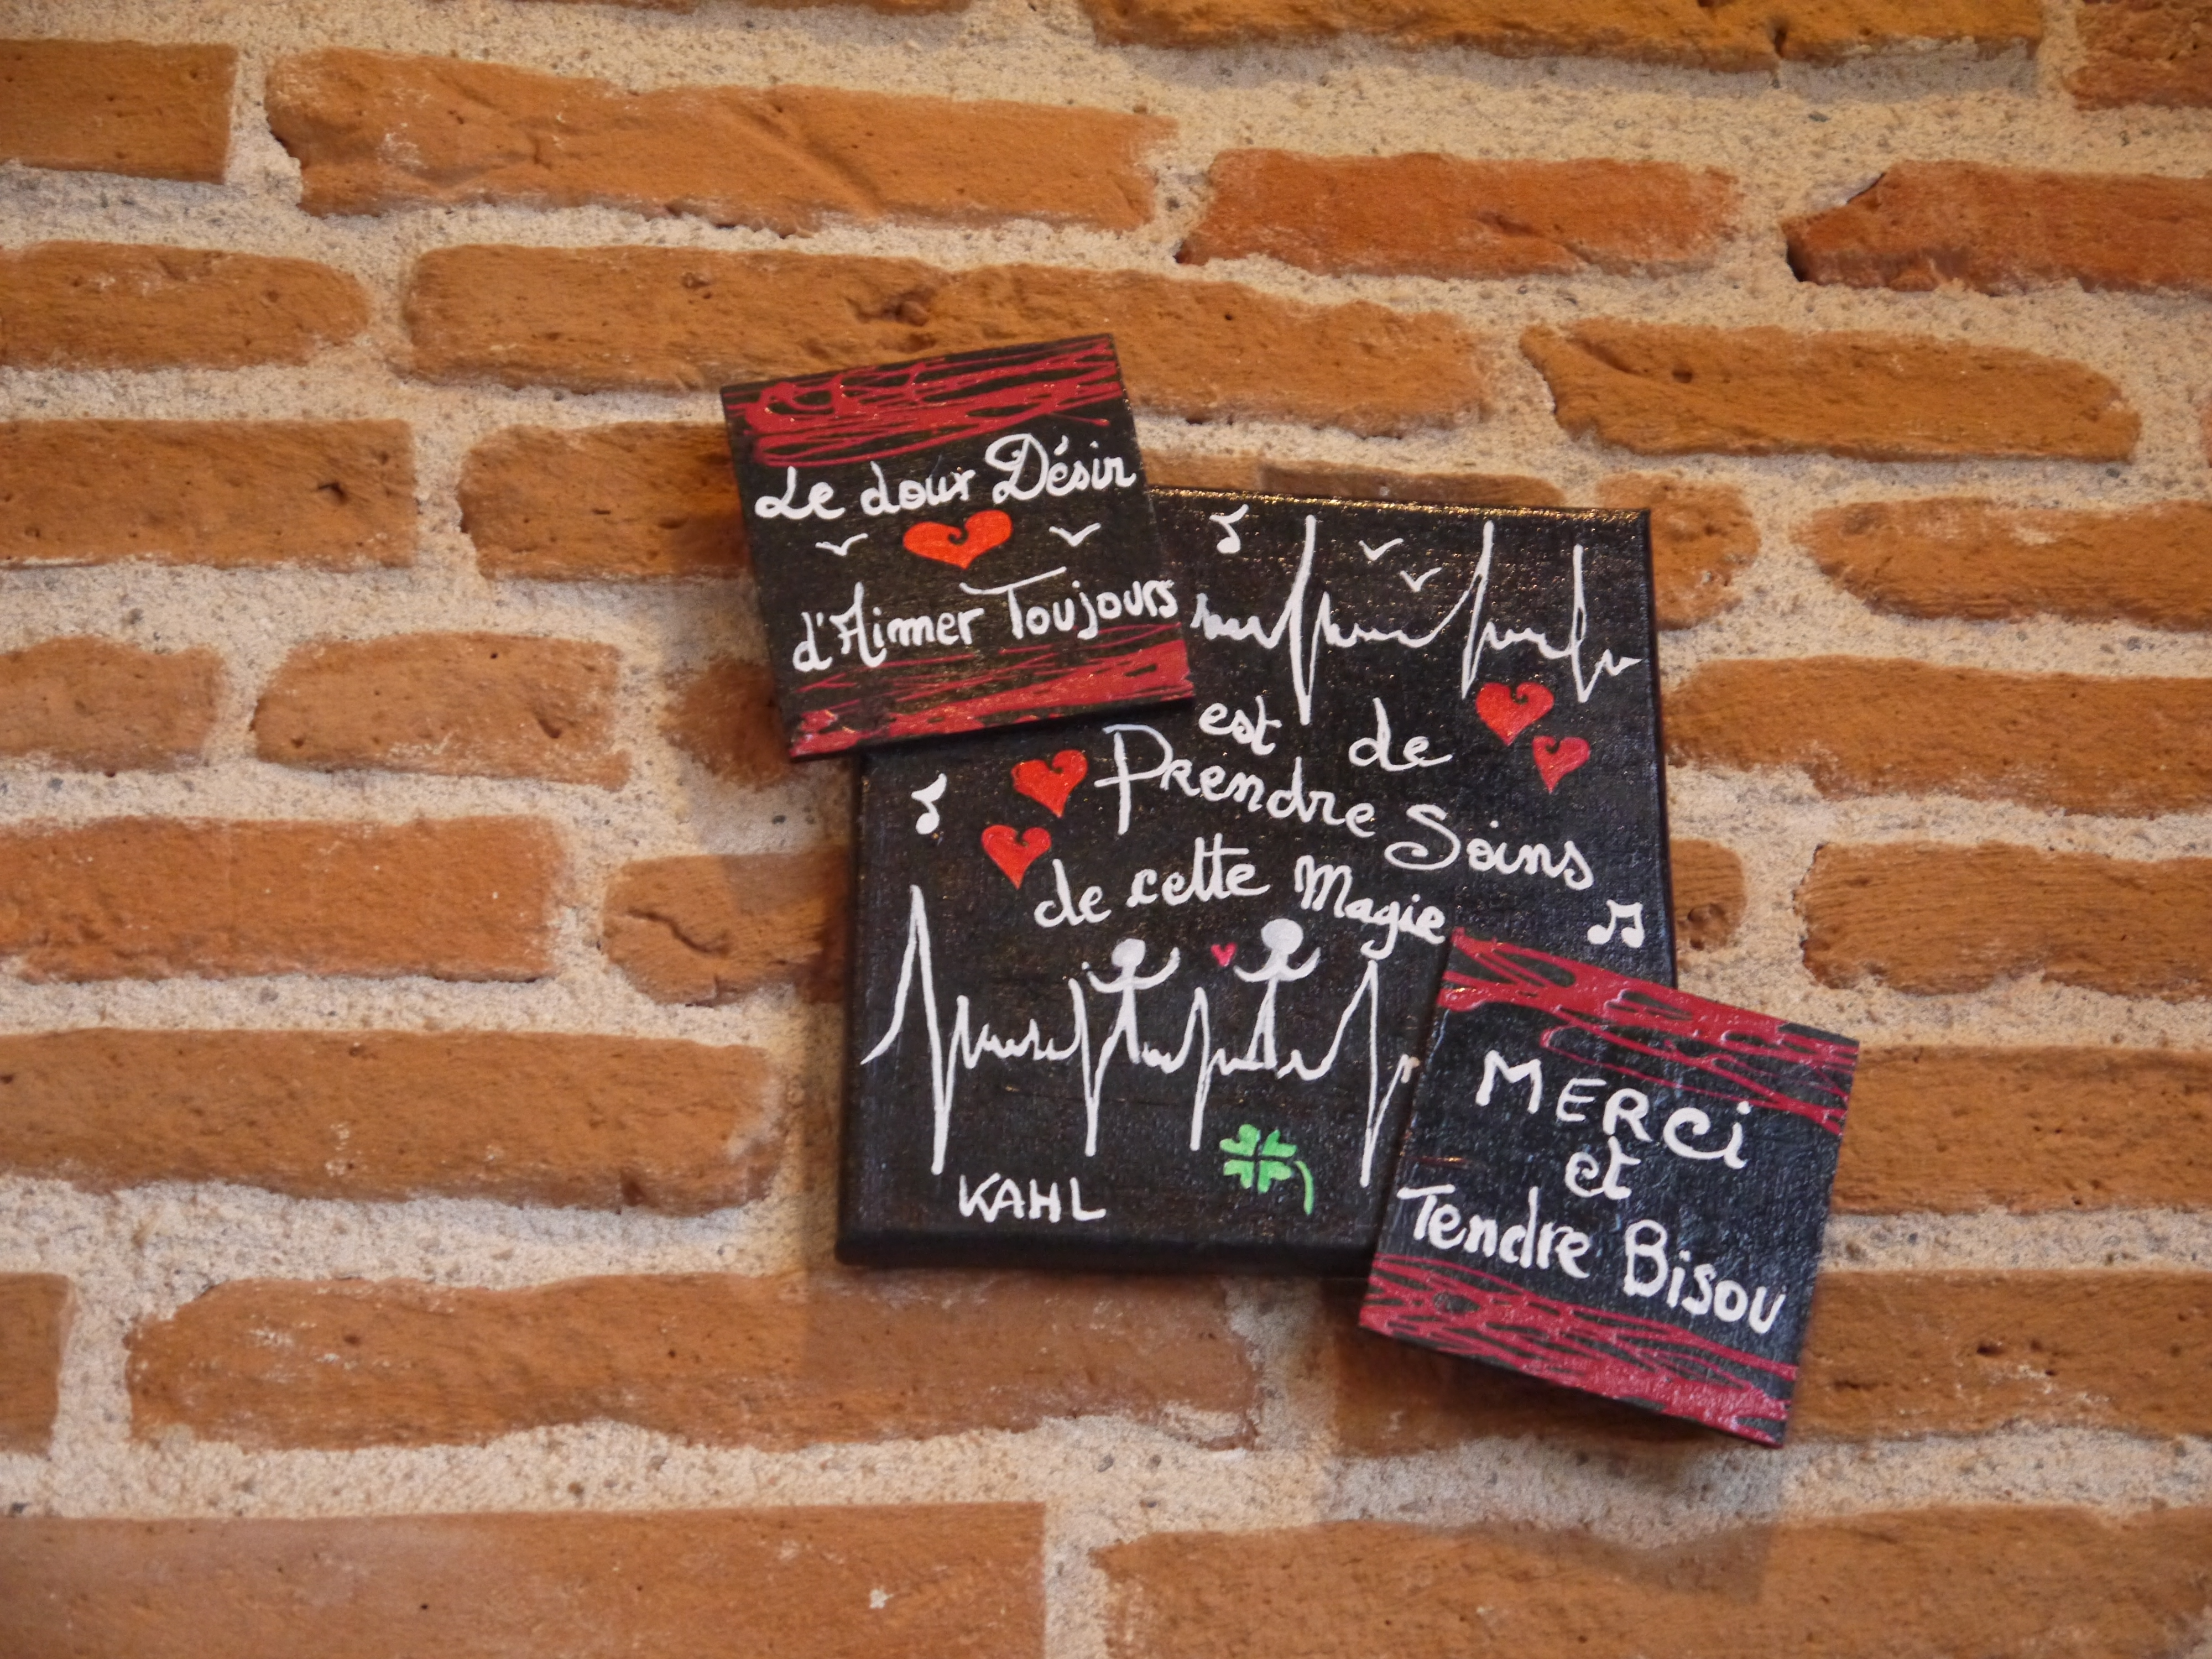 Le doux Désir
d'Aimer Toujours
est de
Prendre Soins
de cette Magie
KAHL
MERCi
et
Tendre Bisou